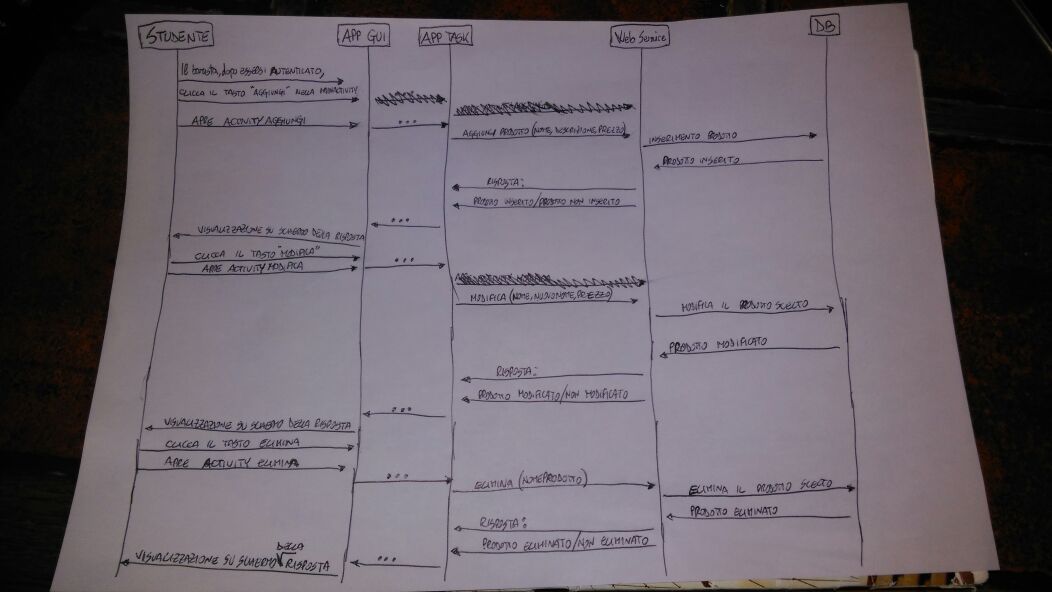 STUDENTE
APP GUI
APP TASK
Web Service
DB
Il barista, dopo essersi AUTENTICATO,
CLICCA IL TASTO "AGGIUNGI" NELLA MAINACTIVITY
APRE ACTIVITY AGGIUNGI
...
AGGIUNGI PRODOTTO (NOME, DESCRIZIONE, PREZZO)
INSERIMENTO PRODOTTO
PRODOTTO INSERITO
RISPOSTA:
PRODOTTO INSERITO/PRODOTTO NON INSERITO
...
VISUALIZZAZIONE SU SCHERMO DELLA RISPOSTA
CLICCA IL TASTO "MODIFICA"
APRE ACTIVITY MODIFICA
...
MODIFICA (NOME, NUOVONOME, PREZZO)
MODIFICA IL PRODOTTO SCELTO
PRODOTTO MODIFICATO
RISPOSTA:
PRODOTTO MODIFICATO/NON MODIFICATO
...
VISUALIZZAZIONE SU SCHERMO DELLA RISPOSTA
CLICCA IL TASTO ELIMINA
APRE ACTIVITY ELIMINA
...
ELIMINA (NOMEPRODOTTO)
ELIMINA IL PRODOTTO SCELTO
PRODOTTO ELIMINATO
RISPOSTA:
PRODOTTO ELIMINATO/NON ELIMINATO
...
VISUALIZZAZIONE SU SCHERMO DELLA RISPOSTA